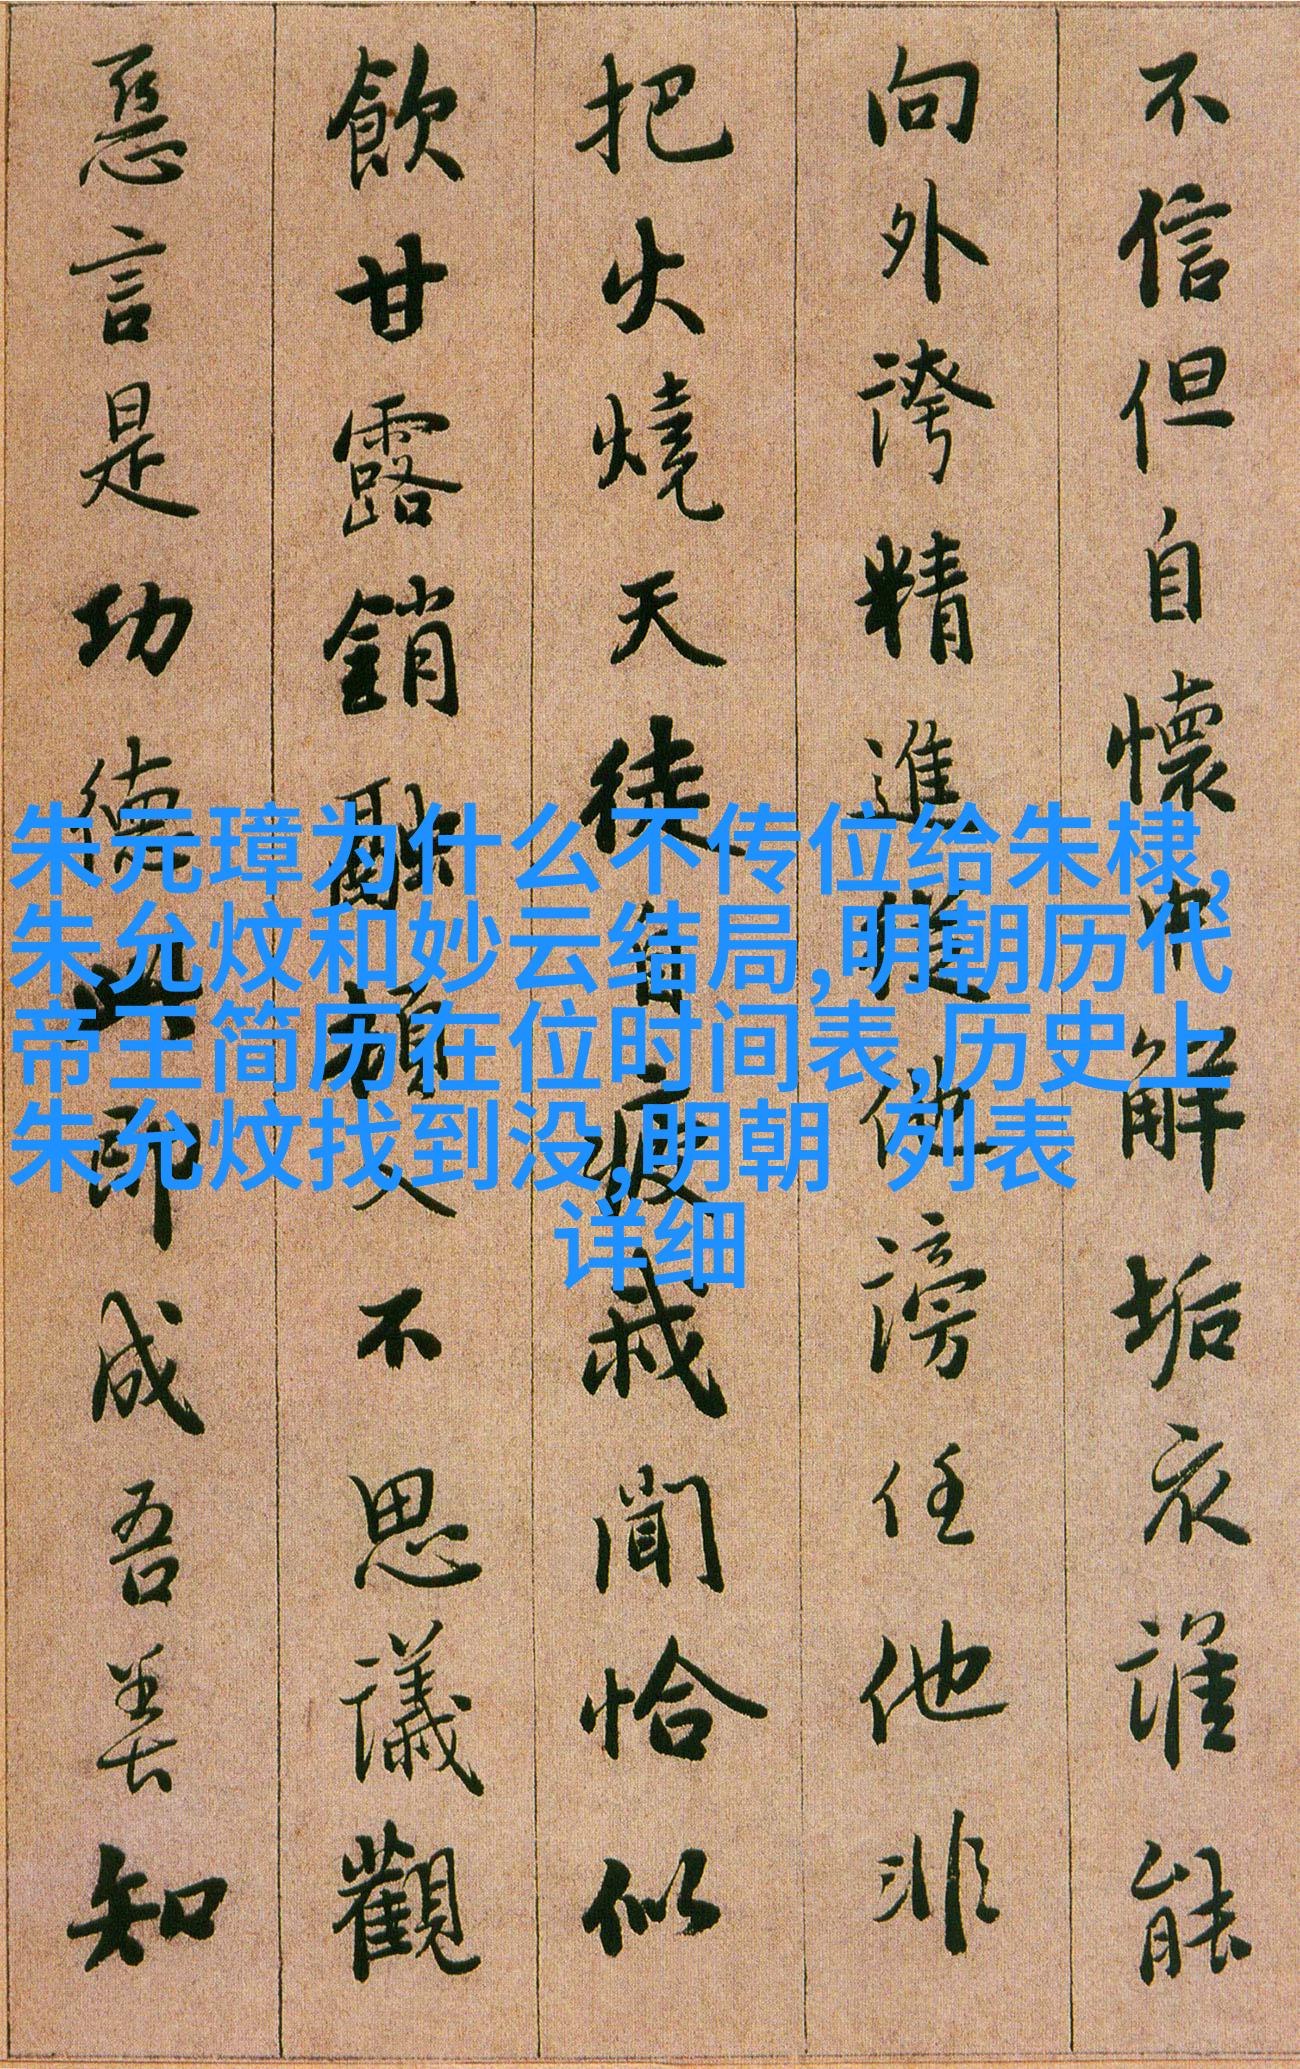 不信但自懷中解垢衣誰能
向外誇精進從他謗任他非
把火燒天徒自疲我聞恰似
飲甘露銷融頓入不思議觀
惡言是功德此即成吾善知
朱元璋为什么不传位给朱棣,
朱允炆和妙云结局,明朝历代
帝王简历在位时间表,历史上
朱允炆找到没,明朝 列表
详细